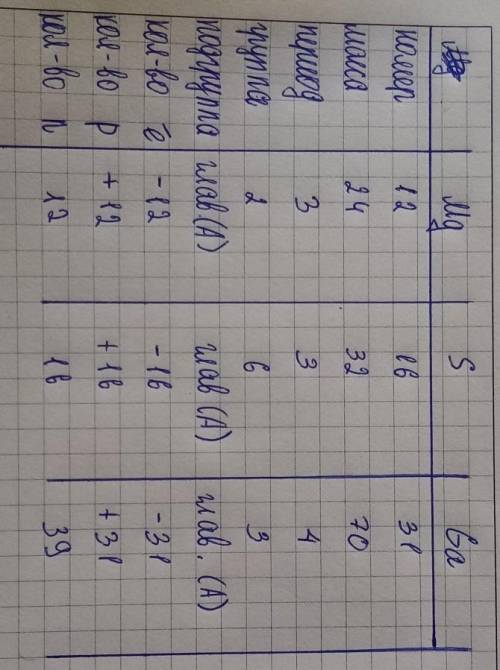 Mg S Ga
номер 12 16 31
масса 24 32 70
период 3 3 4
группа 2 6 3
подгруппа глав (А) глав (А) глав. (А)
кол-во ē -12 -16 -31
кол-во p +12 +16 +31
кол-во n 12 16 39